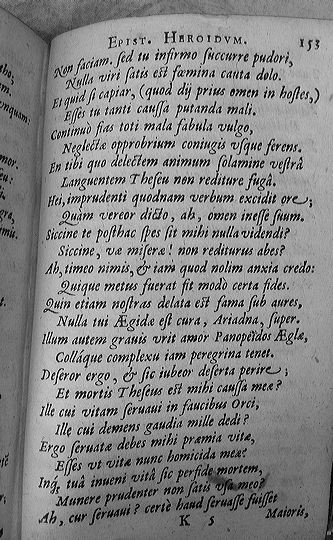 EPIST. HEROIDVM. 153
Non faciam. sed tu infirmo succurre pudori,
Nulla viri satis est fœmina cauta dolo.
Et quid si capiar, (quod dij prius omen in hostes,)
Esses tu tanti caussa putanda mali.
Continuò fias toti mala fabula vulgo,
Neglectæ opprobrium coniugis vsque ferens.
En tibi quo delectem animum solamine vestrâ
Languentem Theseu non rediture fugâ.
Hei, imprudenti quodnam verbum excidit ore;
Quàm vereor dicto, ah, omen inesse suum.
Siccine te posthac spes sit mihi nulla videndi?
Siccine, væ miseræ! non rediturus abes?
Ah, timeo nimis, & iam quod nolim anxia credo:
Quique metus fuerat fit modò certa fides.
Quin etiam nostras delata est fama sub aures,
Nulla tui Ægidæ est cura, Ariadna, super.
Illum autem grauis vrit amor Panopeïdos Æglæ,
Collâque complexu iam peregrina tenet.
Deseror ergo, & sic iubeor deserta perire;
Et mortis Theseus est mihi caussa meæ?
Ille cui vitam seruaui in faucibus Orci,
Ille cui demens gaudia mille dedi?
Ergo seruatæ debes mihi præmia vitæ,
Esses vt vitæ nunc homicida meæ?
Inq; tuâ inueni vitâ sic perfide mortem,
Munere prudenter non satis vsa meo?
Ah, cur seruaui? certè haud seruasse fuisset
K 5 Maioris,